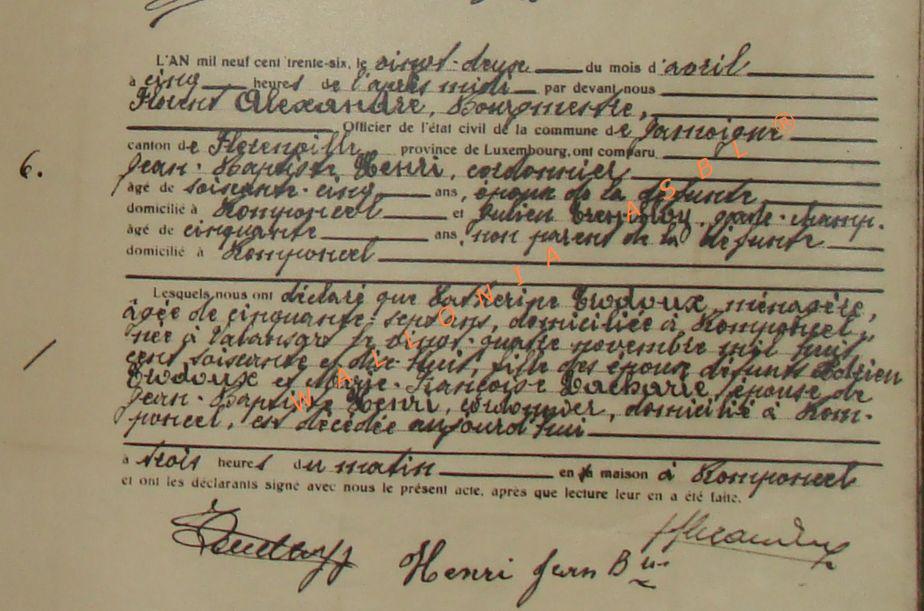 L'AN mil neuf cent trente-six, le vingt-deux du mois d'avril
à cinq heures de l'après midi par devant nous
Florent Alexandre, Bourgmestre,
Officier de l'état civil de la commune de Jamoigne
canton de Florenville province de Luxembourg, ont comparu
6.
Jean-Baptiste Henri, cordonnier
âgé de soixante-cinq ans, époux de la défunte
domicilié à Romponcel et Julien garde-champ.
âgé de cinquante ans, non parent de la défunte
domicilié à Romponcel
Lesquels nous ont déclaré que Catherine ménagère,
âgée de cinquante-sept ans, domiciliée à Romponcel,
née à Valansart le vingt-quatre novembre mil huit
cent soixante et dix huit, fille des époux défunts
et Marie-Françoise Zacharie, épouse de
Jean-Baptiste Henri, cordonnier, domicilié à Rom-
poncel, est décédée aujourd'hui
à trois heures du matin en sa maison à Romponcel
et ont les déclarants signé avec nous le présent acte, après que lecture leur en a été faite.
Henri Jean Bte
WALLONIA ASBL ®